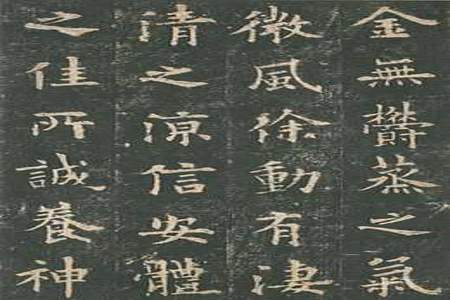 金無欝蒸之氣
微風徐動有凄
清之涼信安體
之佳所誠養神